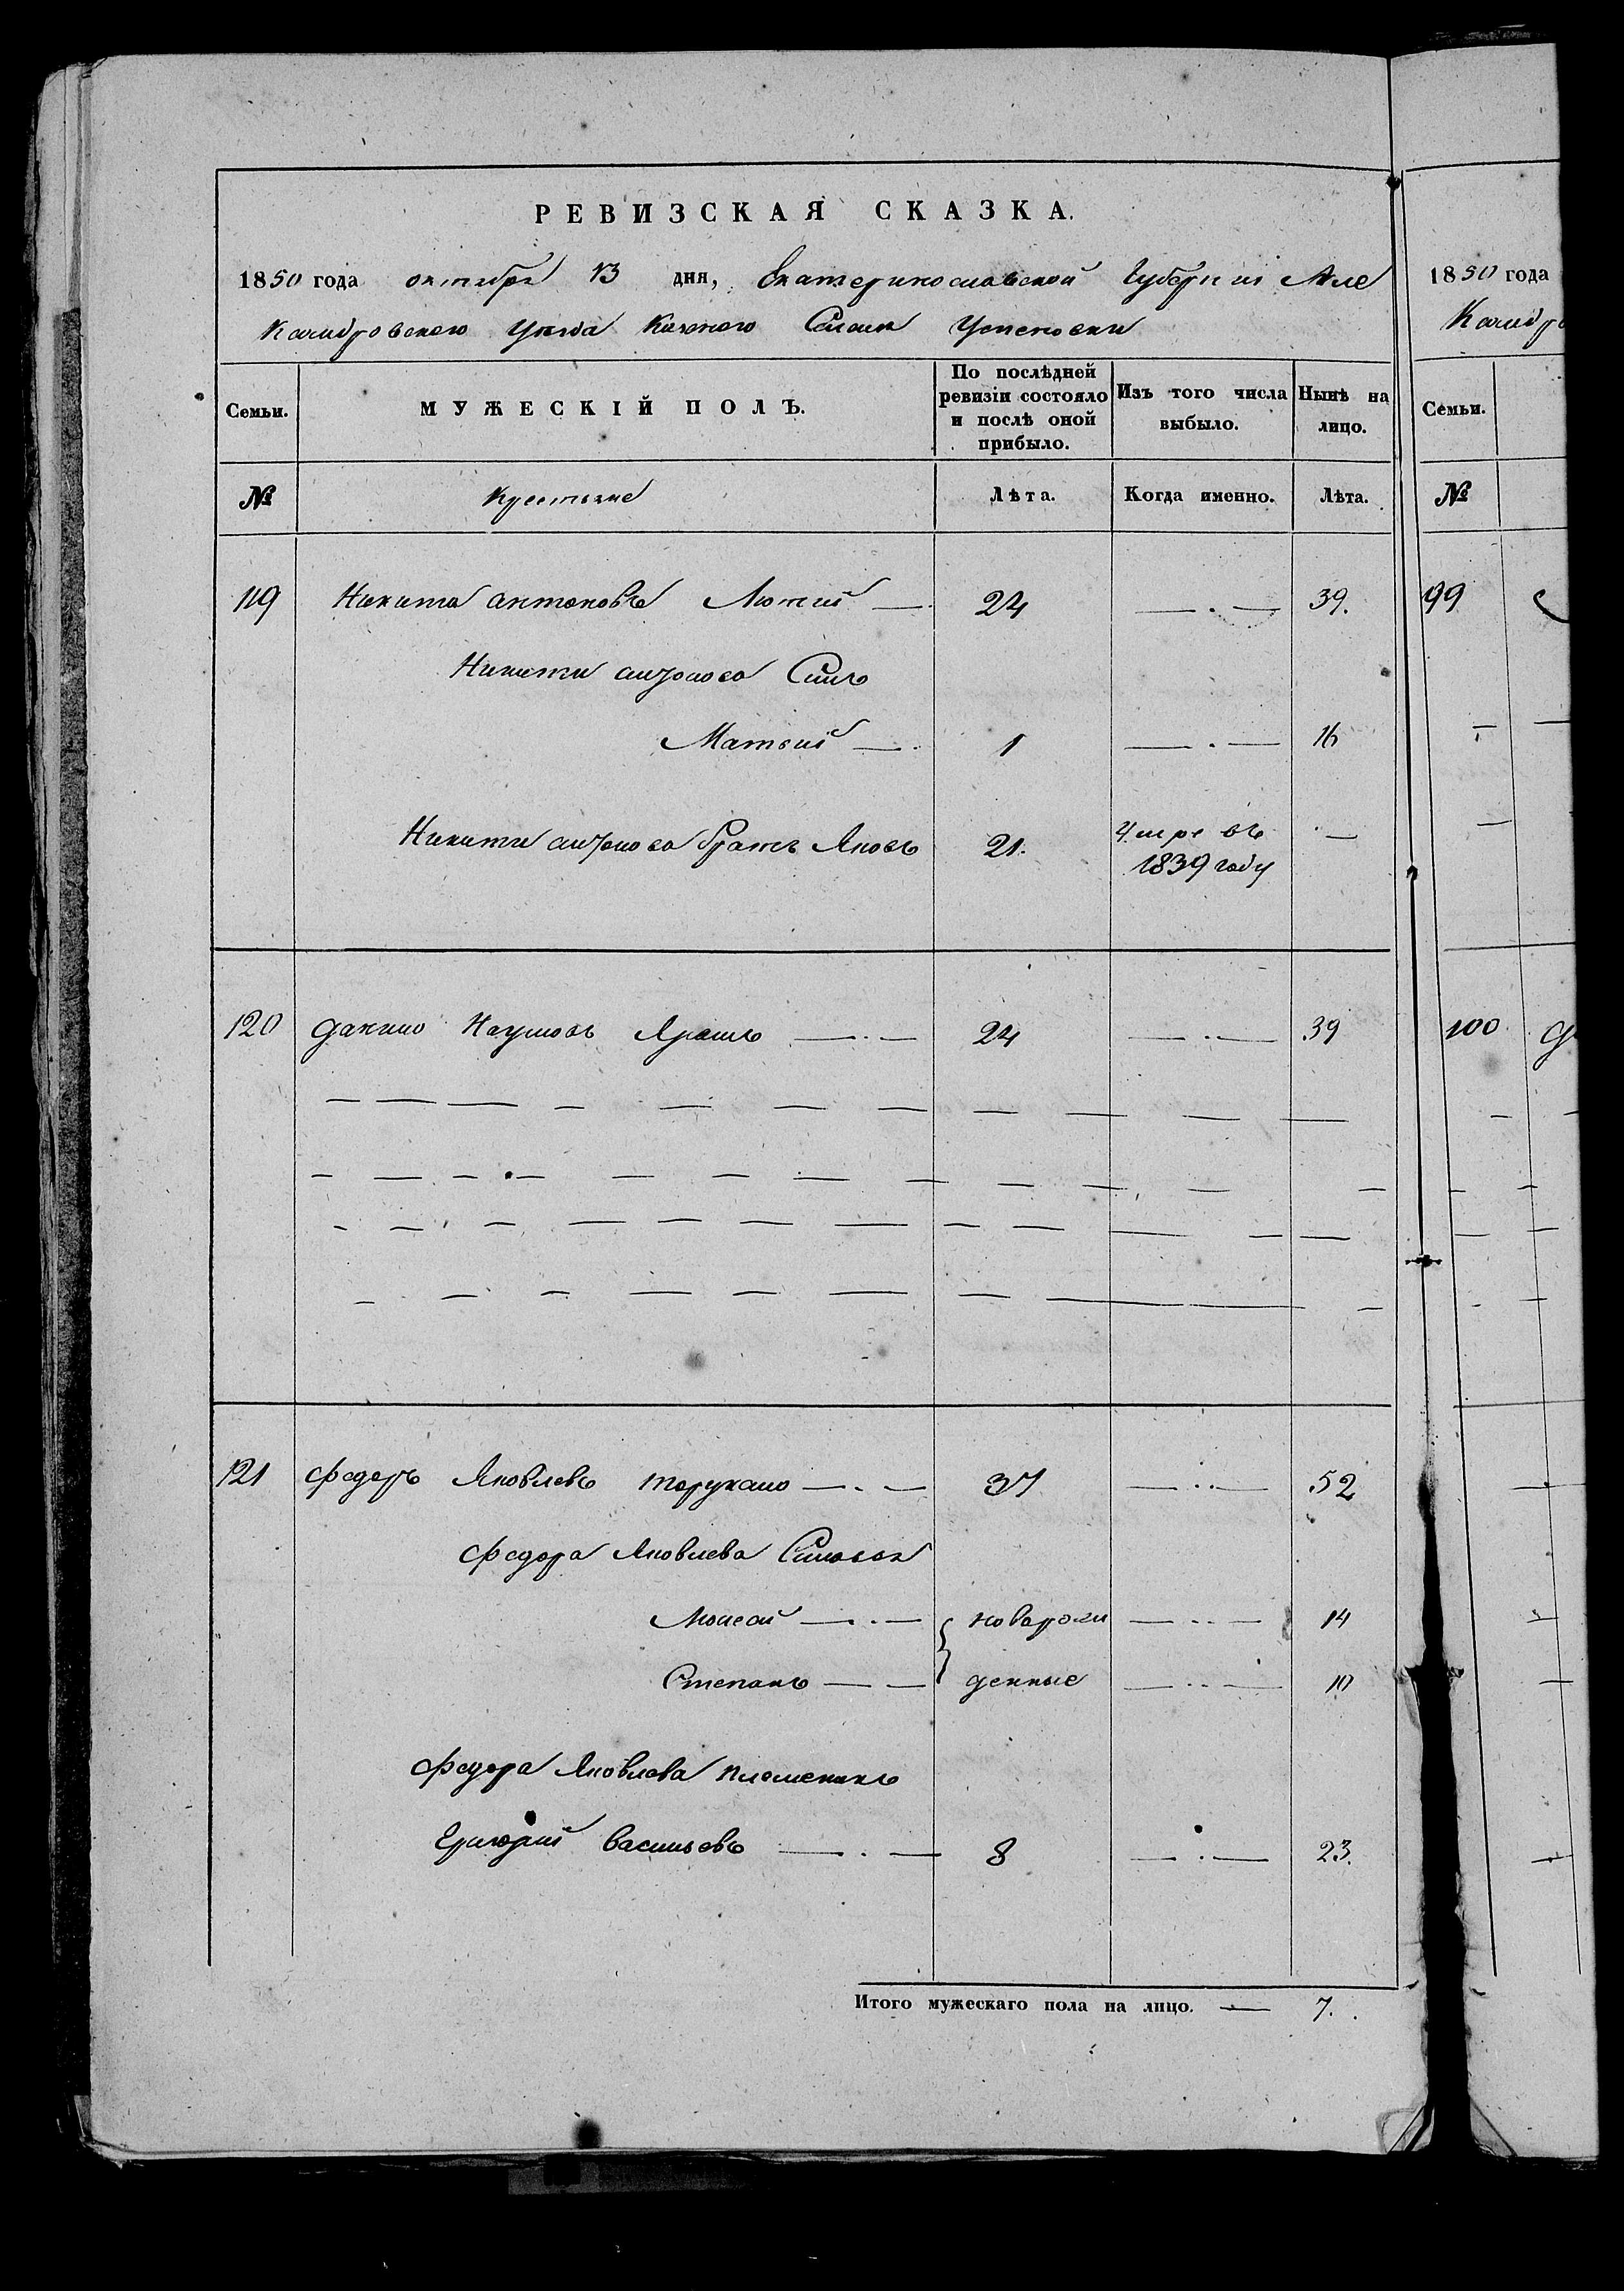 РЕВИЗСКАЯ СКАЗКА.
1850 года октября 13 дня, Екатеринославской Губернiи Але
Ксандровского Уезда Казенного Селенiя Успеновки
Семьи.
МУЖЕСКIЙ ПОЛЪ.
По послѣдней ревизiи состояло и послѣ оной прибыло.
Изъ того числа выбыло.
Нынѣ на лицо.
№ Крестьяне Лѣта. Когда именно. Лѣта.
119 Никита Антоновъ Лютий — 24 — . — 39.
Никити Антонова Синъ
Матвий — 1 — . — 16
Никити Антонова братъ Яковъ 21. Умре въ 1839 году —
120 Данило Наумовъ — . — 24 — . — 39
121 Федоръ Яковлевъ — . — 37 — . . — 52
Федора Яковлева Синовья
Моисей — . — { новорож — . . — 14
Степанъ — — денные — . . — 10
Федора Яковлева племеникъ
Григорий Васильевъ — . — 8 — . — 23.
Итого мужескаго пола на лицо. — 7.
1850 года
Ксандро
Семьи.
№
99
100